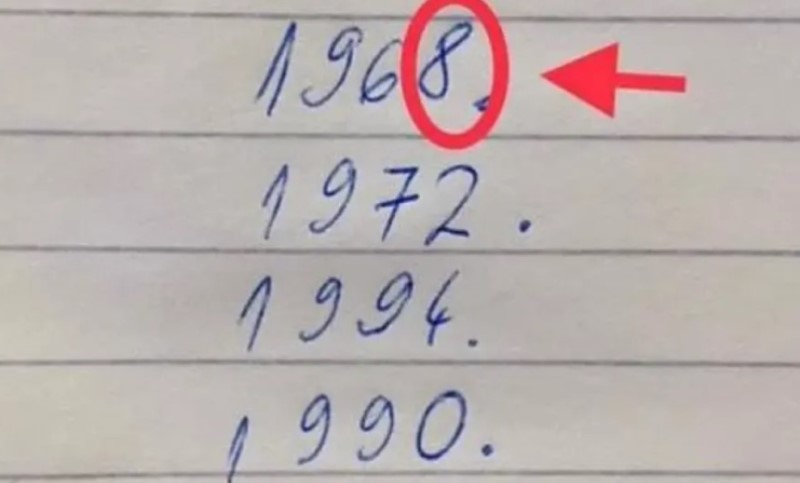 1968.
1972.
1994.
1990.